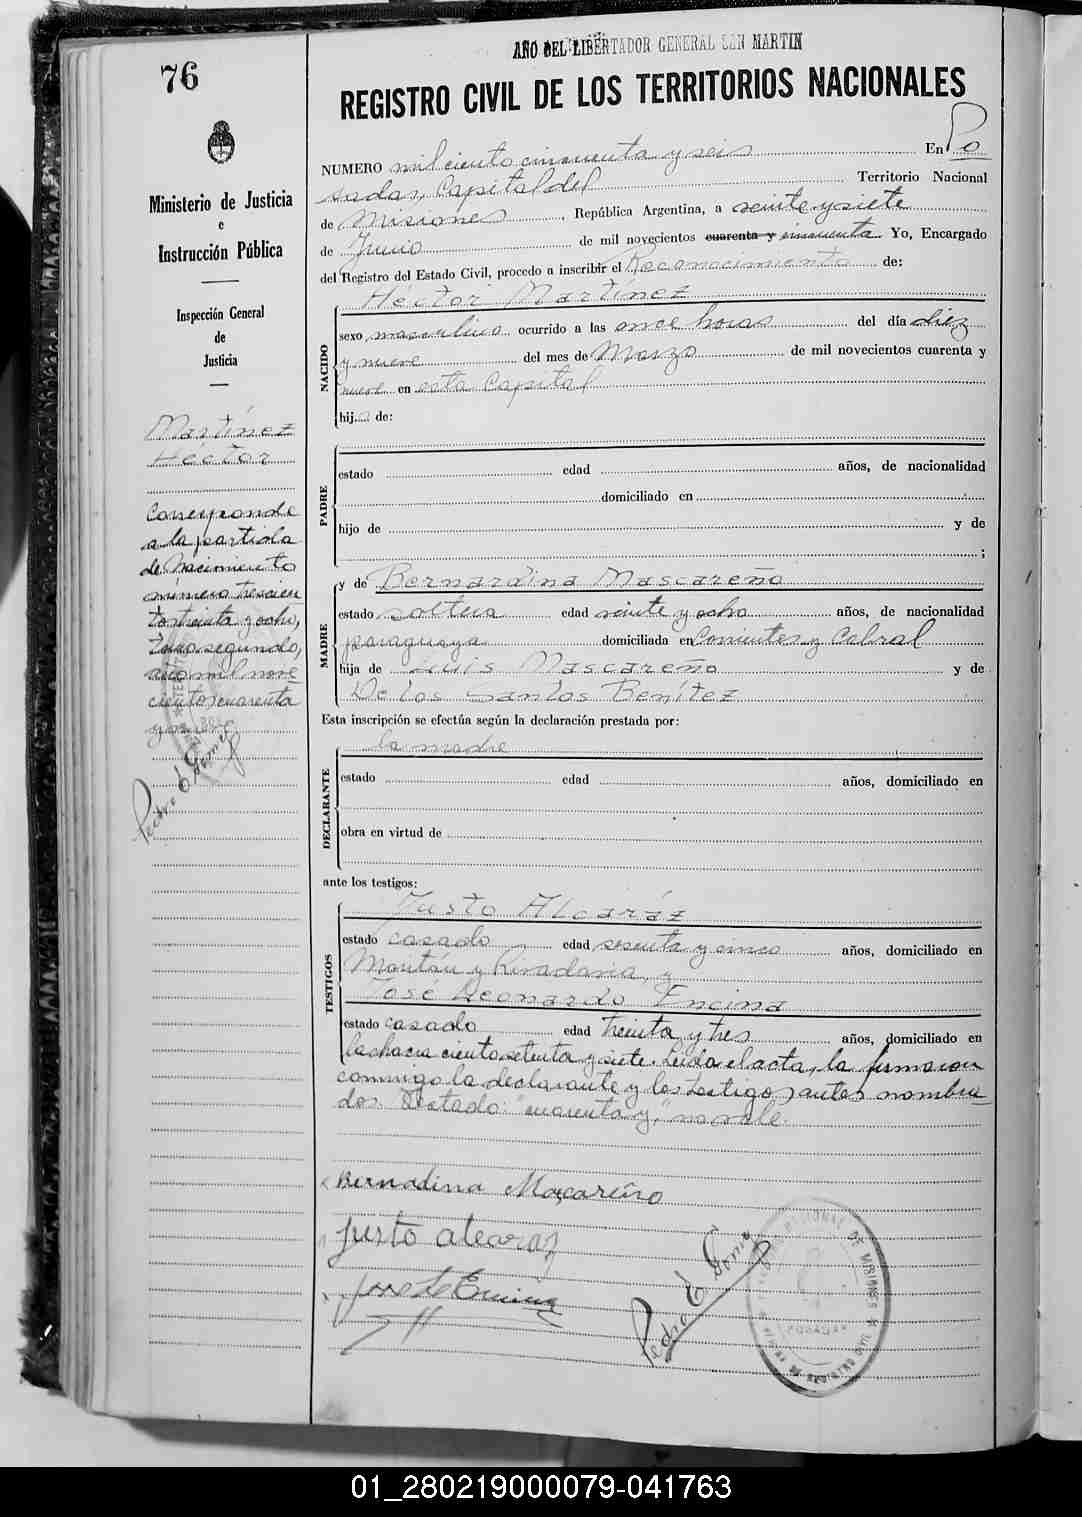 76
AÑO DEL LIBERTADOR GENERAL SAN MARTIN
REGISTRO CIVIL DE LOS TERRITORIOS NACIONALES
Ministerio de Justicia
e
Instrucción Pública
Inspección General
de
Justicia
Martínez
Héctor
Corresponde
a la partida
de Nacimiento
número trescien
tos treinta y ocho,
tomo segundo,
año mil nove
cientos cuarenta
y nueve
Pedro E Gomez
NUMERO mil ciento cincuenta y seis En Po
sadas, Capital del Territorio Nacional
de Misiones, República Argentina, a veinte y siete
de Junio de mil novecientos cuarenta y cincuenta Yo, Encargado
del Registro del Estado Civil, procedo a inscribir el Reconocimiento de:
NACIDO
Héctor Martínez
sexo masculino ocurrido a las once horas del día diez
y nueve del mes de Marzo de mil novecientos cuarenta y
nueve en esta Capital
hij o de:
PADRE
estado edad años, de nacionalidad
domiciliado en
hijo de y de
;
MADRE
y de Bernardina Mascareño
estado soltera edad veinte y ocho años, de nacionalidad
paraguaya domiciliada en Corrientes y Cabral
hija de Luis Mascareño y de
De los Santos Benítez
Esta inscripción se efectúa según la declaración prestada por:
DECLARANTE
la madre
estado edad años, domiciliado en
obra en virtud de
ante los testigos:
TESTIGOS
Justo Alcaráz
estado casado edad sesenta y cinco años, domiciliado en
y Rivadavia, y
José Leonardo Encina
estado casado edad treinta y tres años, domiciliado en
la chacra ciento setenta y siete. Leida el acta, la firmaron
conmigo la declarante y los testigos antes nombra
dos. Testado: "cuarenta y", no vale.
Bernadina Maçareño
Justo alcaraz
Jose L Encina
Pedro E Gomez
POSADAS
01_280219000079-041763